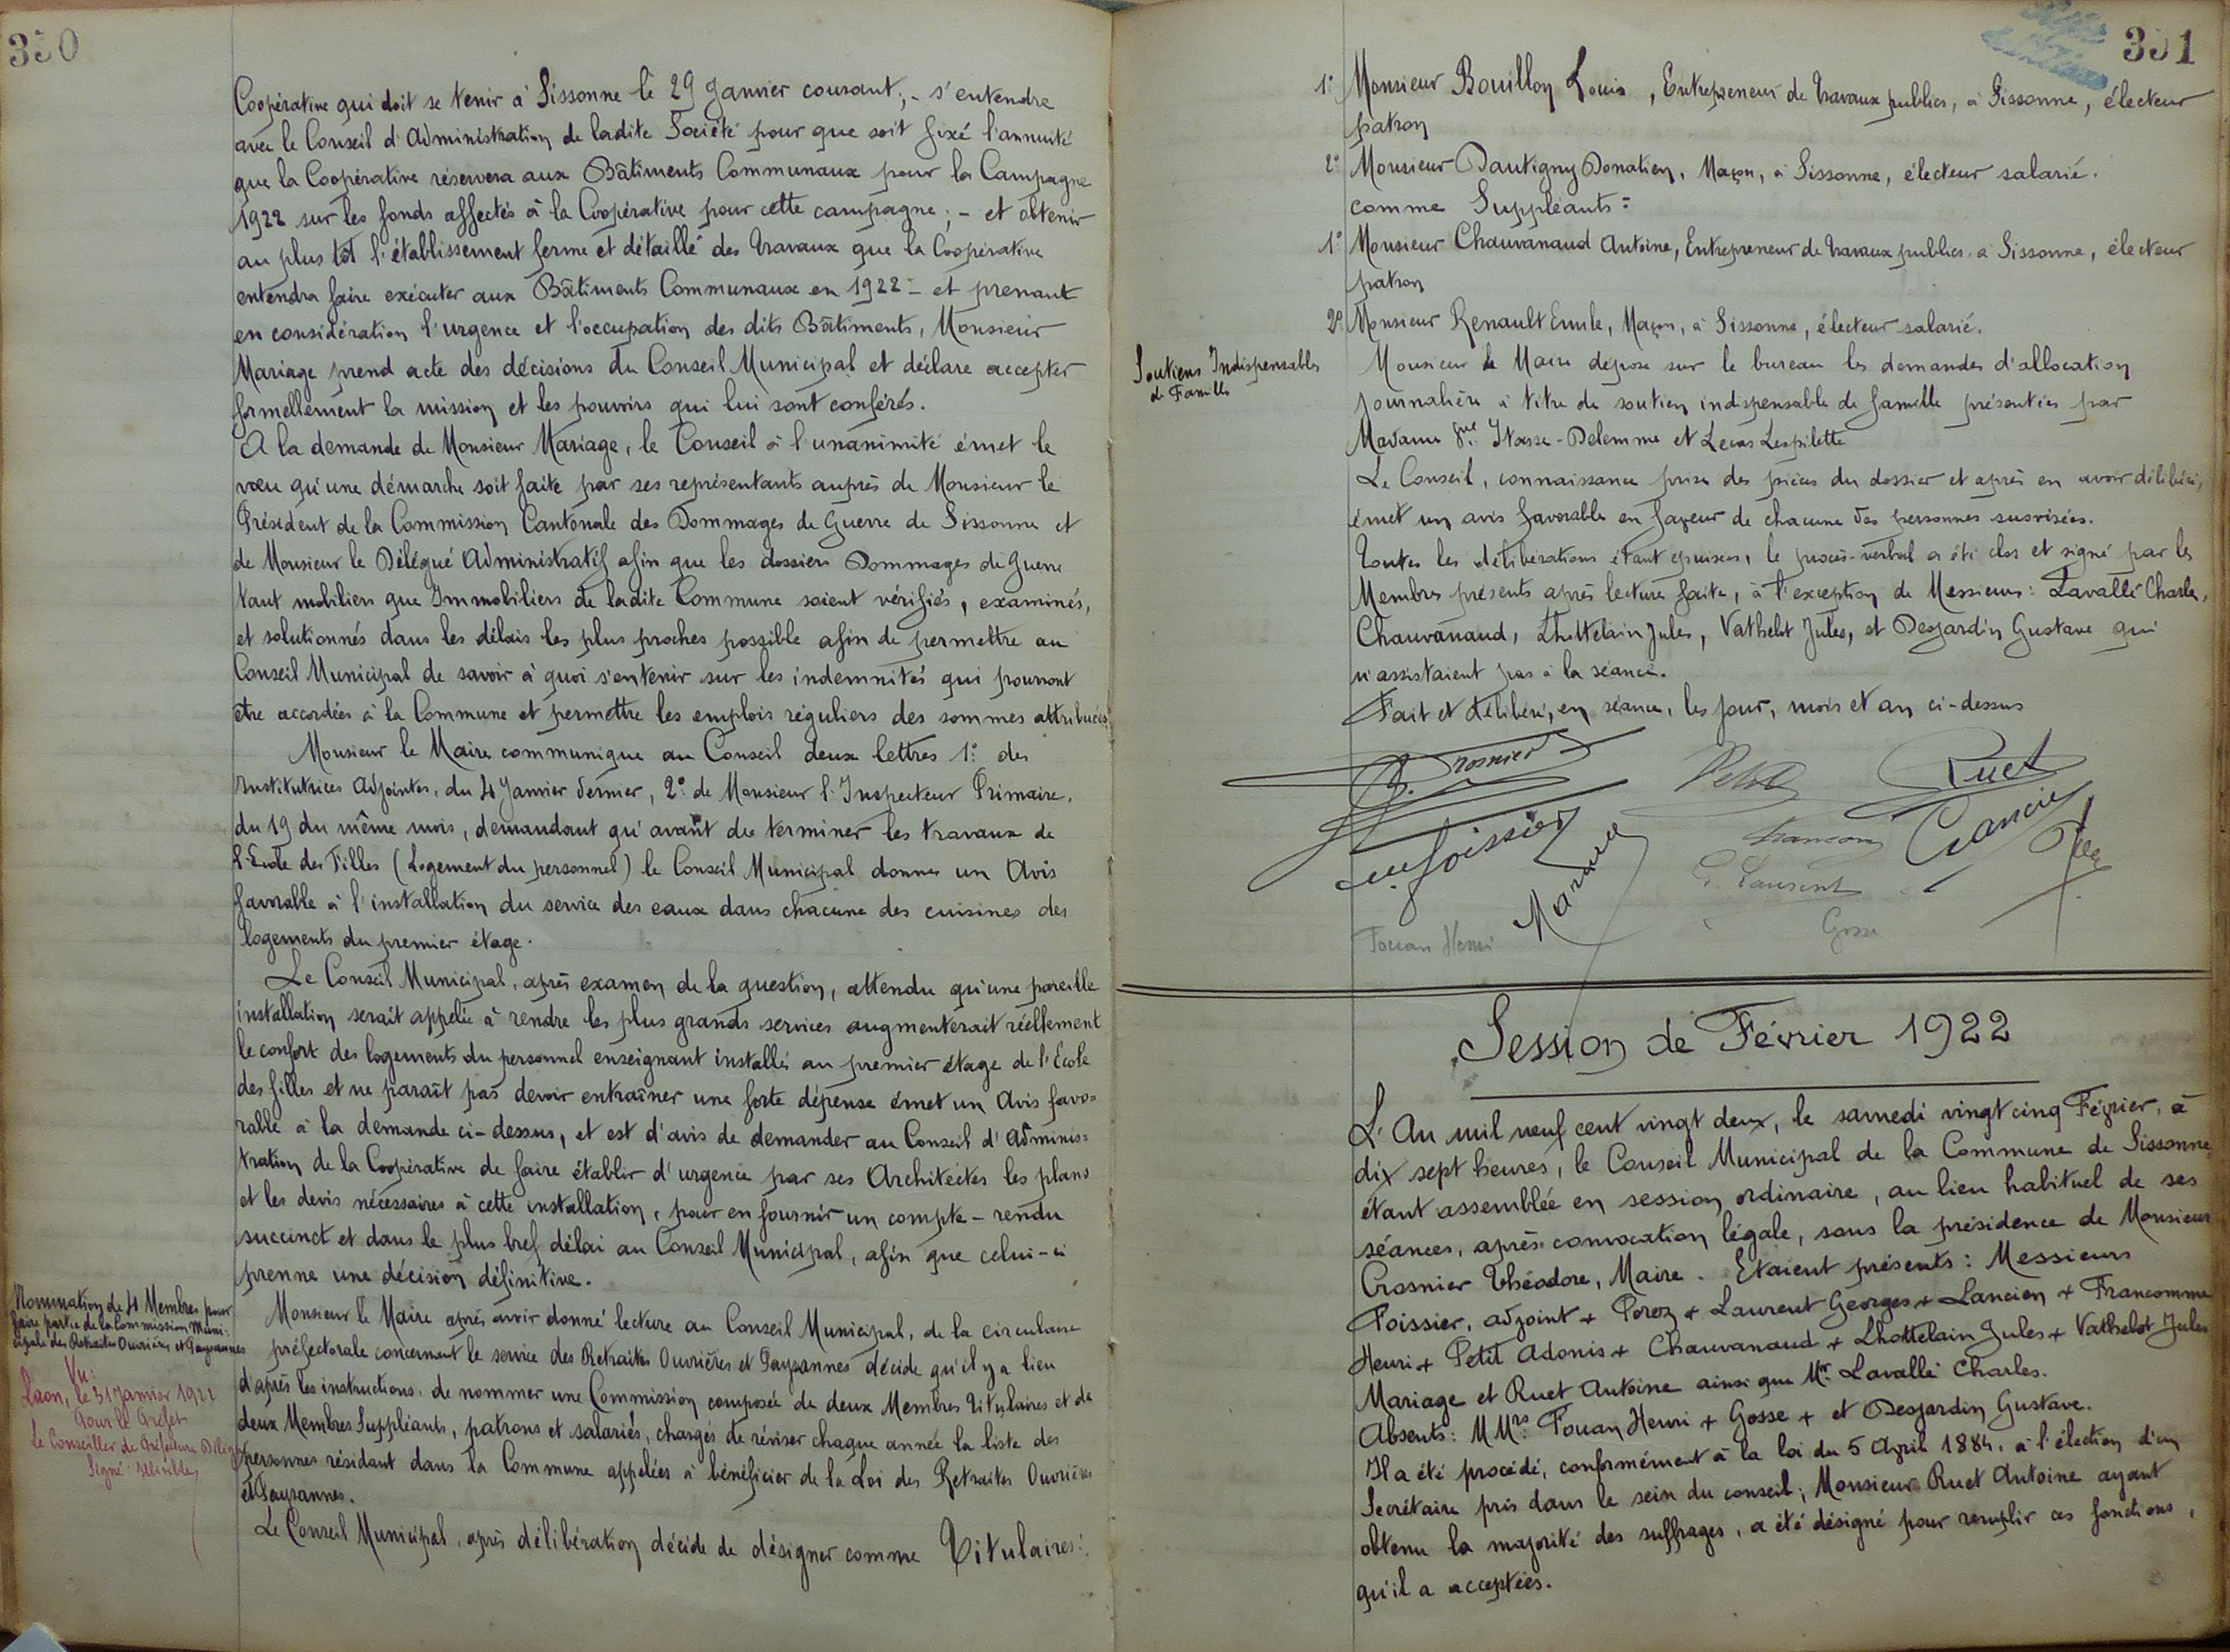 350
Coopérative qui doit se tenir à Sissonne le 29 Janvier courant; - s'entendre
avec le Conseil d'Administration de ladite Société pour que soit fixé l'annuité
que la Coopérative réservera aux Bâtiments Communaux pour la Campagne
1922 sur les fonds affectés à la Coopérative pour cette campagne; - et obtenir
au plus tôt l'établissement ferme et détaillé des travaux que la Coopérative
entendra faire exécuter aux Bâtiments Communaux en 1922 - et prenant
en considération l'urgence et l'occupation des dits Bâtiments, Monsieur
Mariage prend acte des décisions du Conseil Municipal et déclare accepter
formellement la mission et les pouvoirs qui lui sont conférés.
A la demande de Monsieur Mariage, le Conseil à l'unanimité émet le
vœu qu'une démarche soit faite par ses représentants auprès de Monsieur le
Président de la Commission Cantonale des Dommages de Guerre de Sissonne et
de Monsieur le Délégué Administratif afin que les dossiers Dommages de Guerre
tant mobiliers que Immobiliers de ladite Commune soient vérifiés, examinés,
et solutionnés dans les délais les plus proches possible afin de permettre au
Conseil Municipal de savoir à quoi s'entenir sur les indemnités qui pourront
être accordées à la Commune et permettre les emplois réguliers des sommes attribuées.
Monsieur le Maire communique au Conseil deux lettres 1° des
Institutrices Adjointes, du 4 Janvier dernier, 2° de Monsieur l'Inspecteur Primaire,
du 19 du même mois, demandant qu'avant de terminer les travaux de
l'Ecole des Filles (Logement du personnel) le Conseil Municipal donne un Avis
favorable à l'installation du service des eaux dans chacune des cuisines des
logements du premier étage.
Le Conseil Municipal, après examen de la question, attendu qu'une pareille
installation serait appelée à rendre les plus grands services augmenterait réellement
le confort des logements du personnel enseignant installés au premier étage de l'Ecole
des filles et ne paraît pas devoir entraîner une forte dépense émet un Avis favo=
rable à la demande ci-dessus, et est d'avis de demander au Conseil d'Adminis=
tration de la Coopérative de faire établir d'urgence par ses Architectes les plans
et les devis nécessaires à cette installation, pour en fournir un compte-rendu
succinct et dans le plus bref délai au Conseil Municipal, afin que celui-ci
prenne une décision définitive.
Nomination de 4 Membres pour
faire partie de la Commission Muni-
cipale des Retraites Ouvrières et Paysannes
Vu:
Laon, le 31 Janvier 1922
Pour le Préfet
Le Conseiller de Préfecture Délégué
Signé: illisible
Monsieur le Maire après avoir donné lecture au Conseil Municipal, de la circulaire
préfectorale concernant le service des Retraites Ouvrières et Paysannes décide qu'il y a lieu
d'après les instructions, de nommer une Commission composée de deux Membres Titulaires et de
deux Membres Suppléants, patrons et salariés, chargés de réviser chaque année la liste des
personnes résidant dans la Commune appelées à bénéficier de la Loi des Retraites Ouvrières
et Paysannes.
Le Conseil Municipal, après délibération décide de désigner comme Titulaires:
351
1° Monsieur Bouillon Louis, Entrepreneur de travaux publics, à Sissonne, électeur
patron
2° Monsieur Dautigny Donatien, Maçon, à Sissonne, électeur salarié.
comme Suppléants =
1° Monsieur Chauvanaud Antoine, Entrepreneur de travaux publics à Sissonne, électeur
patron
2° Monsieur Renault Emile, Maçon, à Sissonne, électeur salarié.
Soutiens Indispensables
de Famille
Monsieur le Maire dépose sur le bureau les demandes d'allocation
journalière à titre de soutien indispensable de famille présentées par
Madame Itasse-Delemme et Lespilette
Le Conseil, connaissance prise des pièces du dossier et après en avoir délibéré,
émet un avis favorable en faveur de chacune des personnes susvisées.
Toutes les délibérations étant épuisées, le procès-verbal a été clos et signé par les
Membres présents après lecture faite, à l'exception de Messieurs: Lavallé Charles,
Chauvanaud, Lhottelain Jules, Vathelot Jules, et Desjardin Gustave qui
n'assistaient pas à la séance.
Fait et délibéré, en séance, les jour, mois et an ci-dessus
Crosnier Petit Ruet
Foissier Mariage Francomme Lancien
G. Laurent
Fouan Henri Gosse
Session de Février 1922
L'An mil neuf cent vingt deux, le samedi vingt cinq Février, à
dix sept heures, le Conseil Municipal de la Commune de Sissonne,
étant assemblée en session ordinaire, au lieu habituel de ses
séances, après convocation légale, sous la présidence de Monsieur
Crosnier Théodore, Maire. Etaient présents: Messieurs
Foissier, adjoint + Peroz + Laurent Georges + Lancien + Francomme
Henri + Petit Adonis + Chauvanaud + Lhottelain Jules + Vathelot Jules
Mariage et Ruet Antoine ainsi que Mr Lavallé Charles.
Absents: MMrs Fouan Henri + Gosse + et Desjardin Gustave.
Il a été procédé, conformément à la loi du 5 Avril 1884, à l'élection d'un
Secrétaire pris dans le sein du conseil; Monsieur Ruet Antoine ayant
obtenu la majorité des suffrages, a été désigné pour remplir ces fonctions,
qu'il a acceptées.